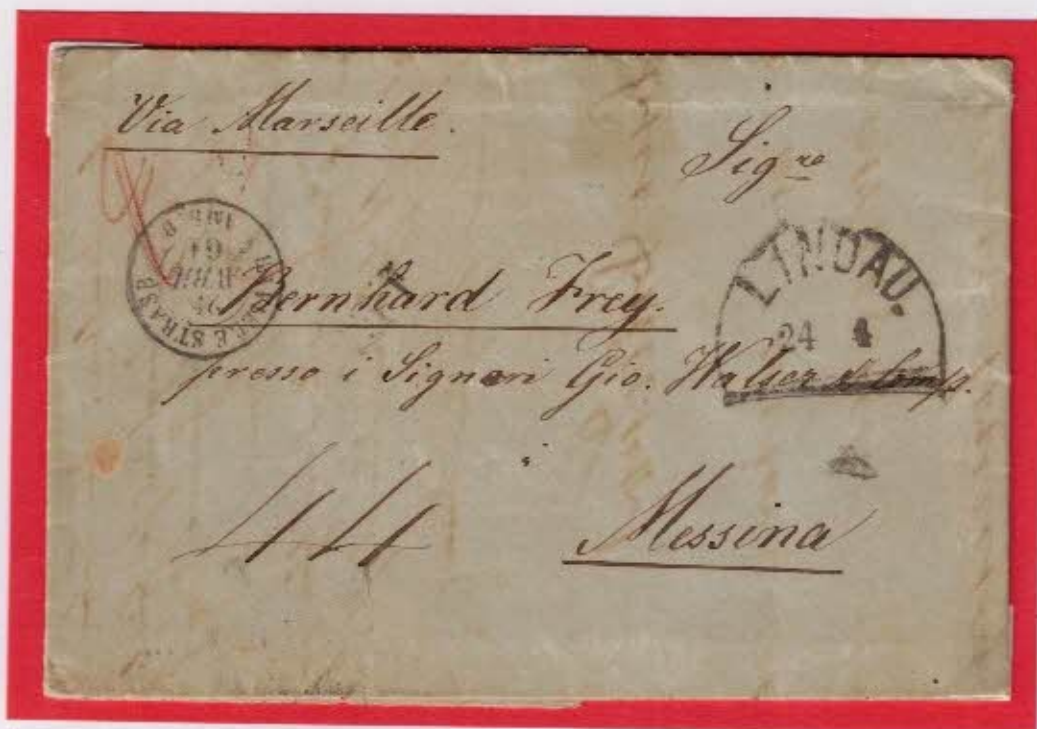 Via Marseille.
Sig.re
LINDAU.
24 4
STRASB
61
Bernhard Frey.
presso i Signori Gio. Walser & Comp.
44
Messina